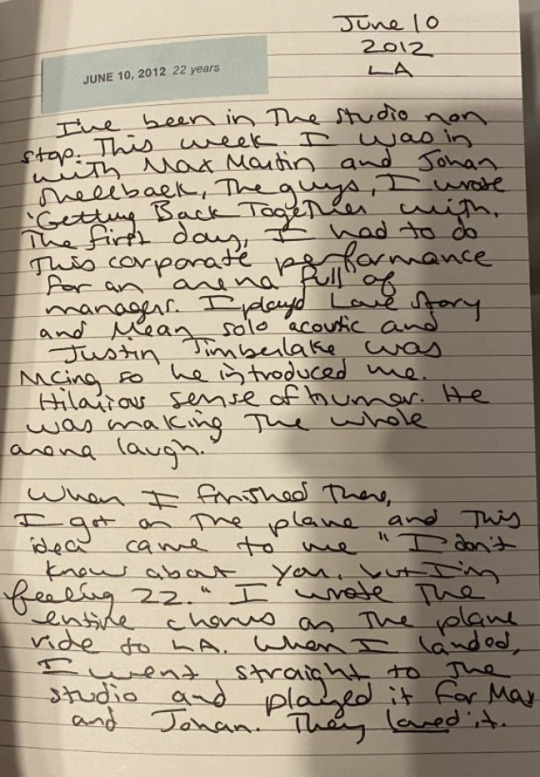 June 10
2012
LA
JUNE 10, 2012 22 years
I've been in The studio non
stop. This week I was in
with Max Martin and Johan
Shellback, The guys, I wrote
'Getting Back Together with.
The first day, I had to do
This corporate performance
for an arena full of
managers. I played Love Story
and Mean solo acoustic and
Justin Timberlake was
MCing so he introduced me.
Hilarious sense of humor. He
was making The whole
arena laugh.
When I finished There,
I got on The plane and This
idea came to me "I don't
know about you, but I'm
feeling 22." I wrote The
entire chorus on The plane
ride to LA. When I landed,
I went straight to The
studio and played it for Max
and Johan. They loved it.